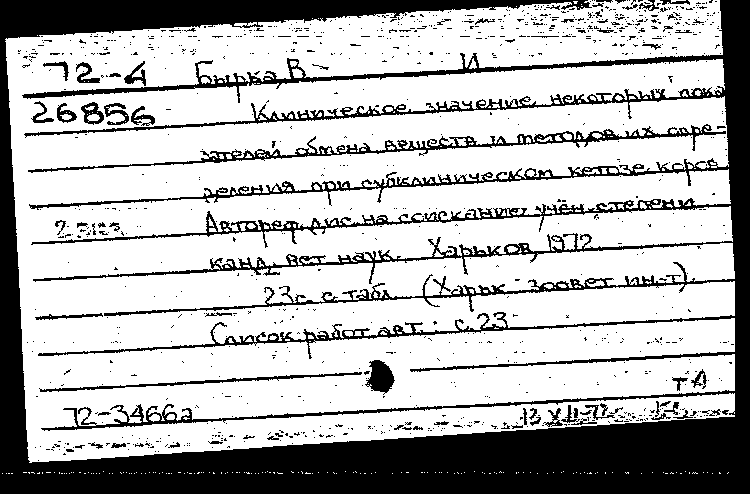 72-4 Бырка, В. И
26856 Клиническое значение некоторых пока
зателей обмена веществ и методов их опре-
деления при субклиническом кетозе коров
Автореф. дис. на соискание учён. степени
канд. вет наук. Харьков, 1972.
23с. с табл. (Харьк зоовет ин-т).
Список работ авт.: с. 23
тА
72-3466а 13 XII-72